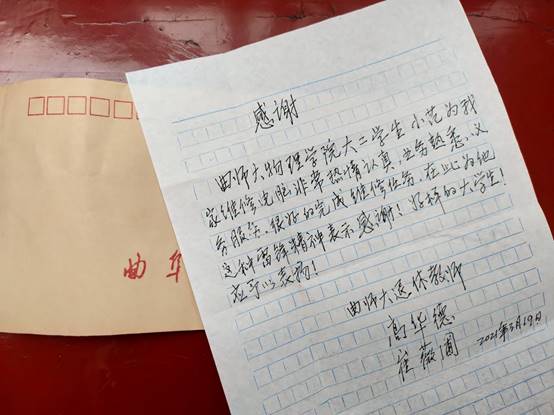 感谢
曲师大物理学院大二学生小范为我
家维修电脑非常热情认真,业务熟悉、义
务服务、很好的完成维修任务,在此为他
这种雷锋精神表示感谢!好样的大学生!
应予以表扬!
曲师大退休教师
高华德
崔薇圃
2021年3月19日
曲阜